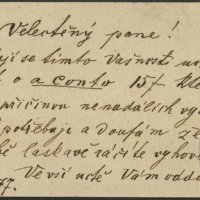 Velectěný pane!
jí se tímto Vašnosti
o a conto 15f
příčinou nenadálých vy
potřebuje a doufám že
ě laskavě ráčíte vyhov
Ve vší úctě Vám odda